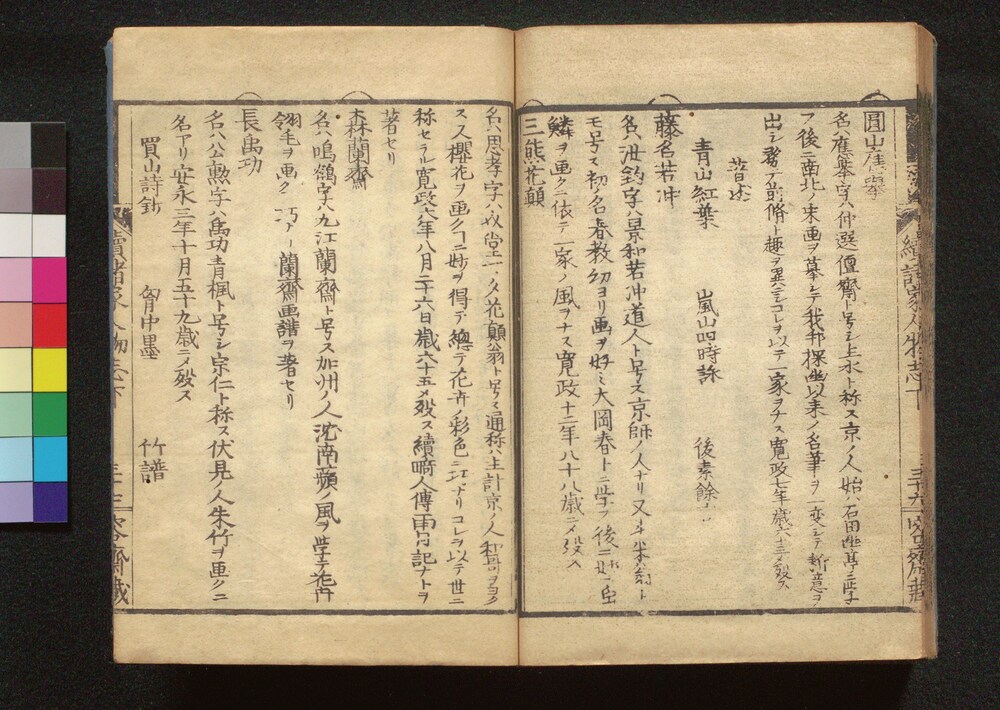 圓山應擧
名ハ應擧字ハ仲選僊齋ト号シ主水ト称ス京ノ人始ハ石田幽亭ニ学
フ後ニ南北ノ宋画ヲ摹シテ我邦探幽以来ノ名筆ヲ一変シテ新意ヲ
出シ務テ前脩ト趣ヲ異ニシコレヲ以テ一家ヲナス寛政七年歳六十三ニメ歿ス
著述
青山紅葉 嵐山四時詠 後素餘言
藤若冲
名ハ汝鈞字ハ景和若冲道人ト号ス京師ノ人ナリ又斗米翁ト
モ号ス初名春教幼ヨリ画ヲ好ミ大岡春卜ニ学フ後ニ
鱗ヲ画クニ依テ一家ノ風ヲナス寛政十二年八十八歳ニメ歿ス
三熊花顛
名ハ思孝字ハ攷堂一ニ花顛翁ト号ス通称ハ主計京ノ人和哥ヲヨク
ス又櫻花ヲ画クニ妙ヲ得テ總テ花卉ノ彩色ニ工ナリコレヲ以テ世ニ
称セラル寛政六年八月二十六日歳六十五ニメ歿ス續畸人傳雨日記ナトヲ
著セリ
森蘭齋
名ハ鳴鶴字ハ九江蘭齋ト号ス加州ノ人沈南蘋ノ風ヲ学テ花卉
翎毛ヲ画クニ巧ナリ蘭齋画譜ヲ著セリ
長禹功
名ハ公勲字ハ禹功青楓ト号シ宗仁ト称ス伏見ノ人朱竹ヲ画クニ
名アリ安永三年十月五十九歳ニメ歿ス
買山詩鈔 胷中墨 竹譜
續諸家人物志下
三十六
容齋藏